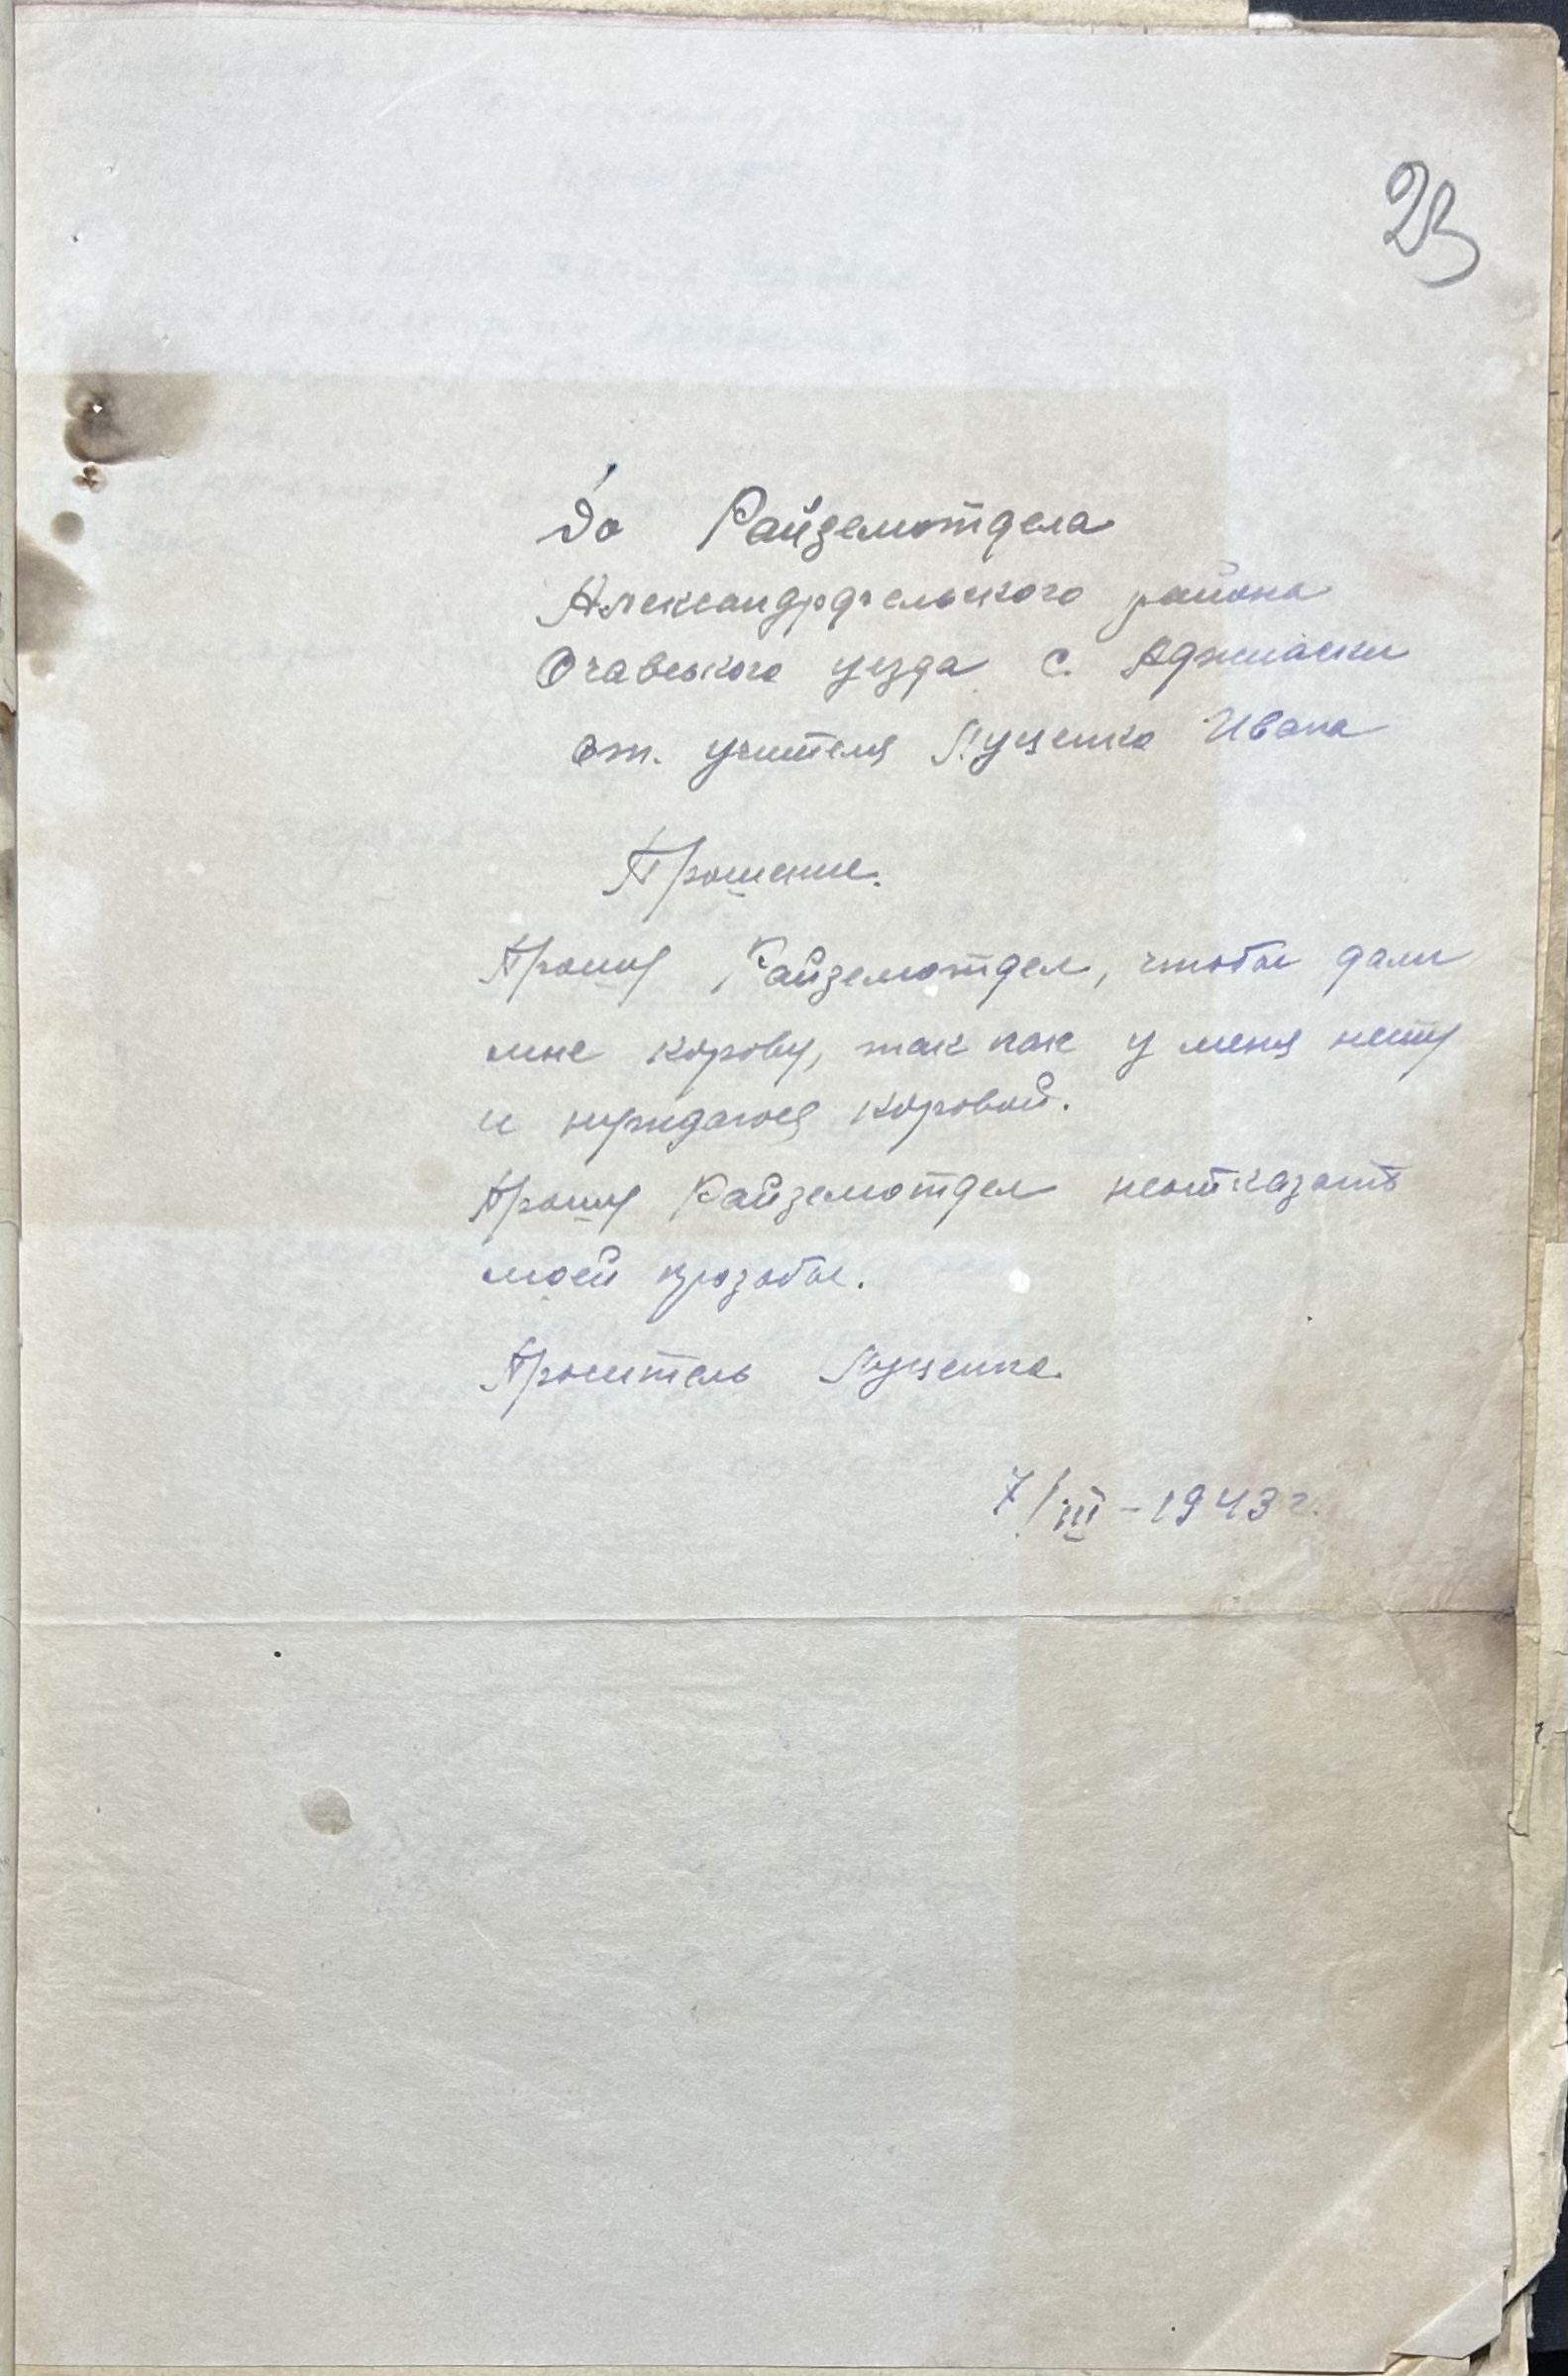 23
До Райземотдела
Александрфельского района
Очавського уезда с. Аджиаски
от. учителя Луценко Ивана
Прошение.
Прошу Райземотдел, чтобы дали
мне корову, так как у меня нету
и нуждаюся коровой.
Прошу Райземотдел неотказать
моей прозьбы.
Проситель Луценко.
7/III – 1943 г.